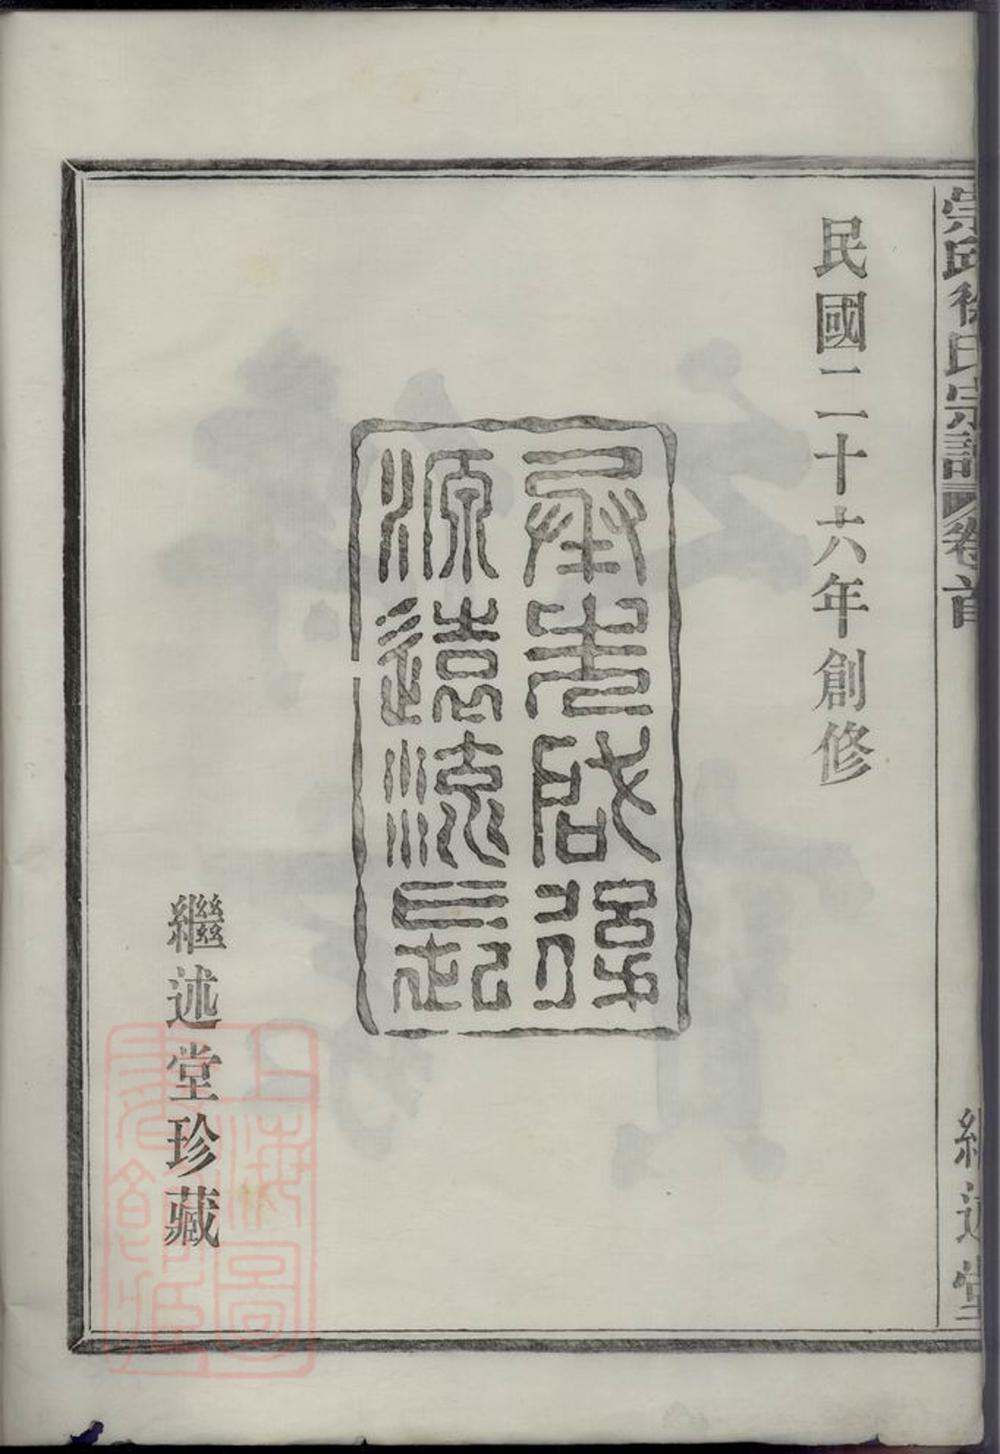 崇邱徐氏宗譜 卷首 繼述堂
民國二十六年創修
承先啟後
源遠流長
繼述堂珍藏
上海圖
書館藏